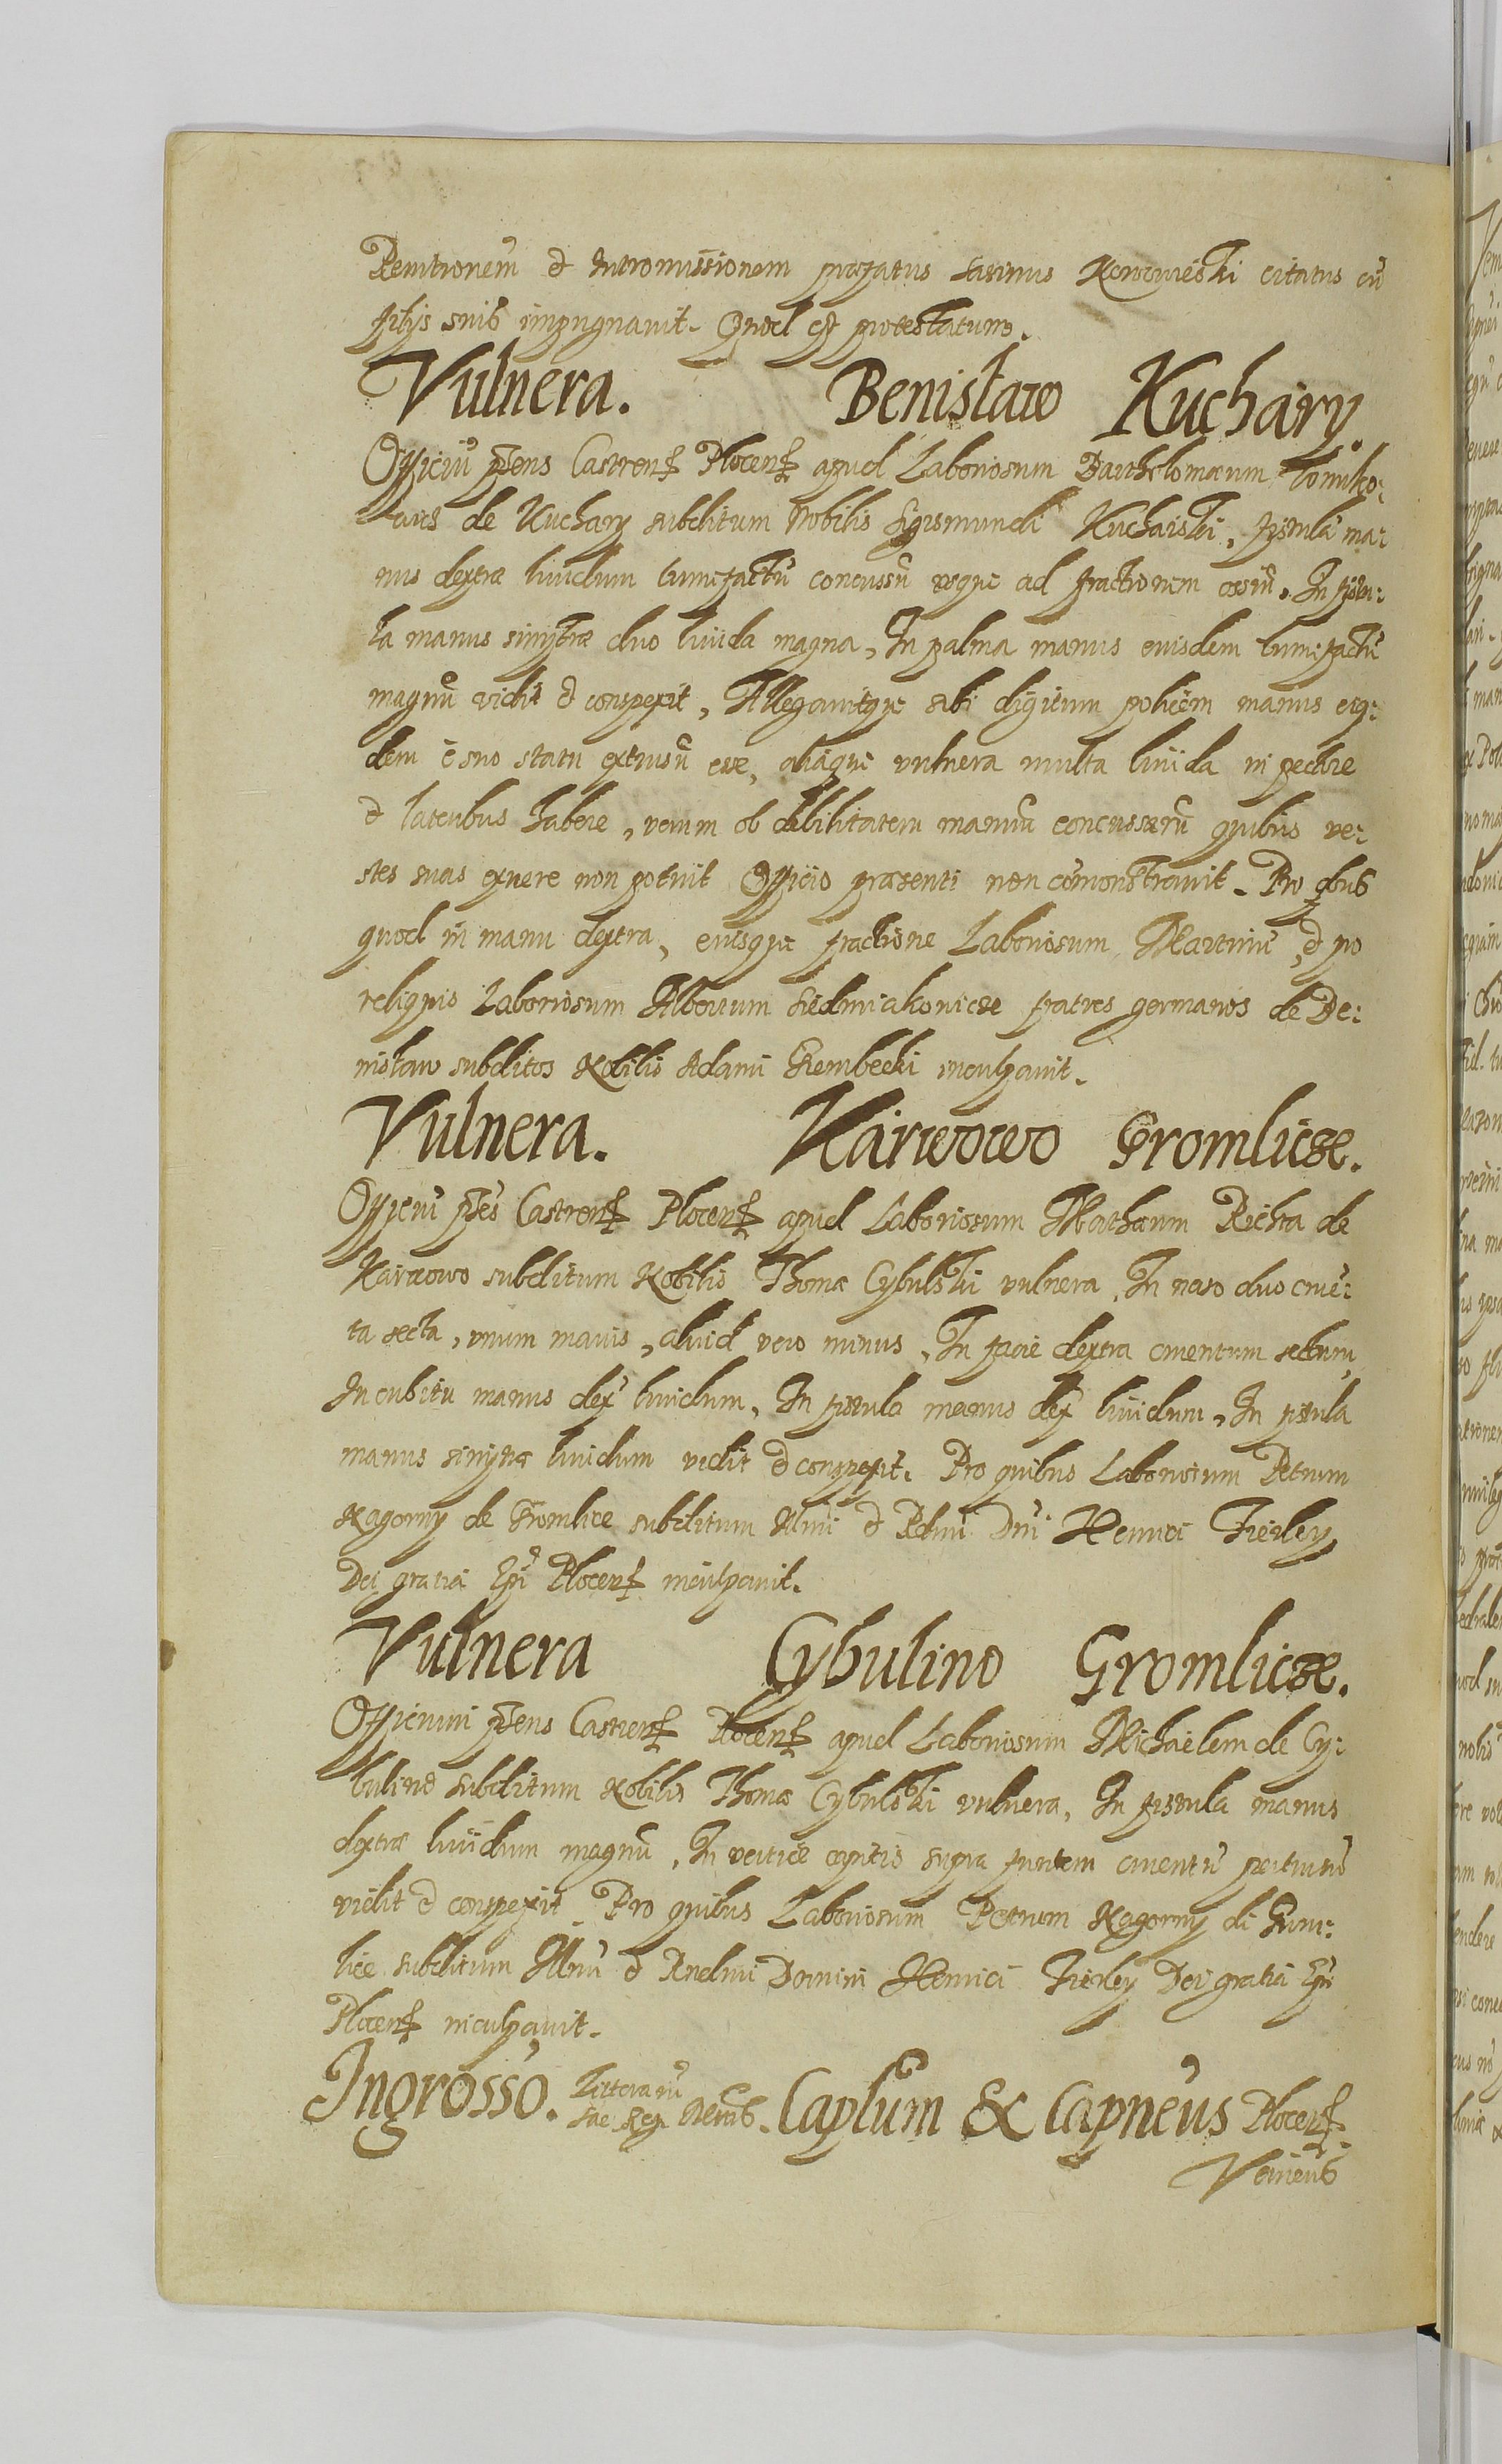 Remtionem & Intromissionem præfatus Karwowski citatus cũ
filijs suis impugnauit. Quod est protestatum.
Vulnera. Benisław Kuchary.
Officiũ pñs Castren Plocen apud Laboriosum Bartholomæum
de Kuchary subditum Nobilis Sigismundi Kucharski, fistulã ma:
nus dextræ liuidum tumefactũ concussũ usque ad fractionem ossiũ. In fistu:
la manus sinistræ duo liuida magna, In palma manus eiusdem tumefactũ
magnũ vidit & conspexit, Allegauitque sibi digitum policem manus eius:
dem è suo statu extrusũ esse, aliaque vulnera multa liuida in pectore
& lateribus habere, verum ob debilitatem manuũ concussarũ quibus ve:
stes suas exuere non potuit Officio præsenti non comonstrauit. Pro qbus
quod in manu dextra, eiusque fractione Laboriosum Martinũ, & pro
reliquis Laboriosum Albertum Siedmiakonicze fratres germanos de Be:
nisław subditos Nobilis Adami Grembecki inculpauit.
Vulnera. Karwowo Gromlicze.
Officiũ pñs Castren Plocen apud Laboriosum Mathæum Richta de
Karwowo subditum Nobilis Thomæ Cybulski vulnera, In naso duo crue:
ta secta, vnum maius, aliud vero minus, In facie dextra cruentum sectum,
In cubitu manus dex liuidum, In fistula manus dex liuidum, In fistula
manus sinistræ liuidum vidit & conspexit. Pro quibus Laboriosum Petrum
Nagorny de Gromlice subditum Illmi & Rdmi Dni Henrici Firley
Dei gratia Epi Plocen inculpauit.
Vulnera Cybulino Gromlicze.
Officium pñs Castren Plocen apud Laboriosum Michaelem de Cy:
bulino subditum Nobilis Thomæ Cybulski vulnera, In fistula manus
dextræ liuidum magnũ, In vertice capitis supra frontem cruentũ
vidit & conspexit. Pro quibus Laboriosum Petrum Nagorny de Grom:
lice subditum Illmi & Rndmi Domini Henrici Firley Dei gratia Epi
Plocen inculpauit.
Ingrosso. Litterarũ Sac. Reg. Caplum & Capneus Plocen
Venieñs